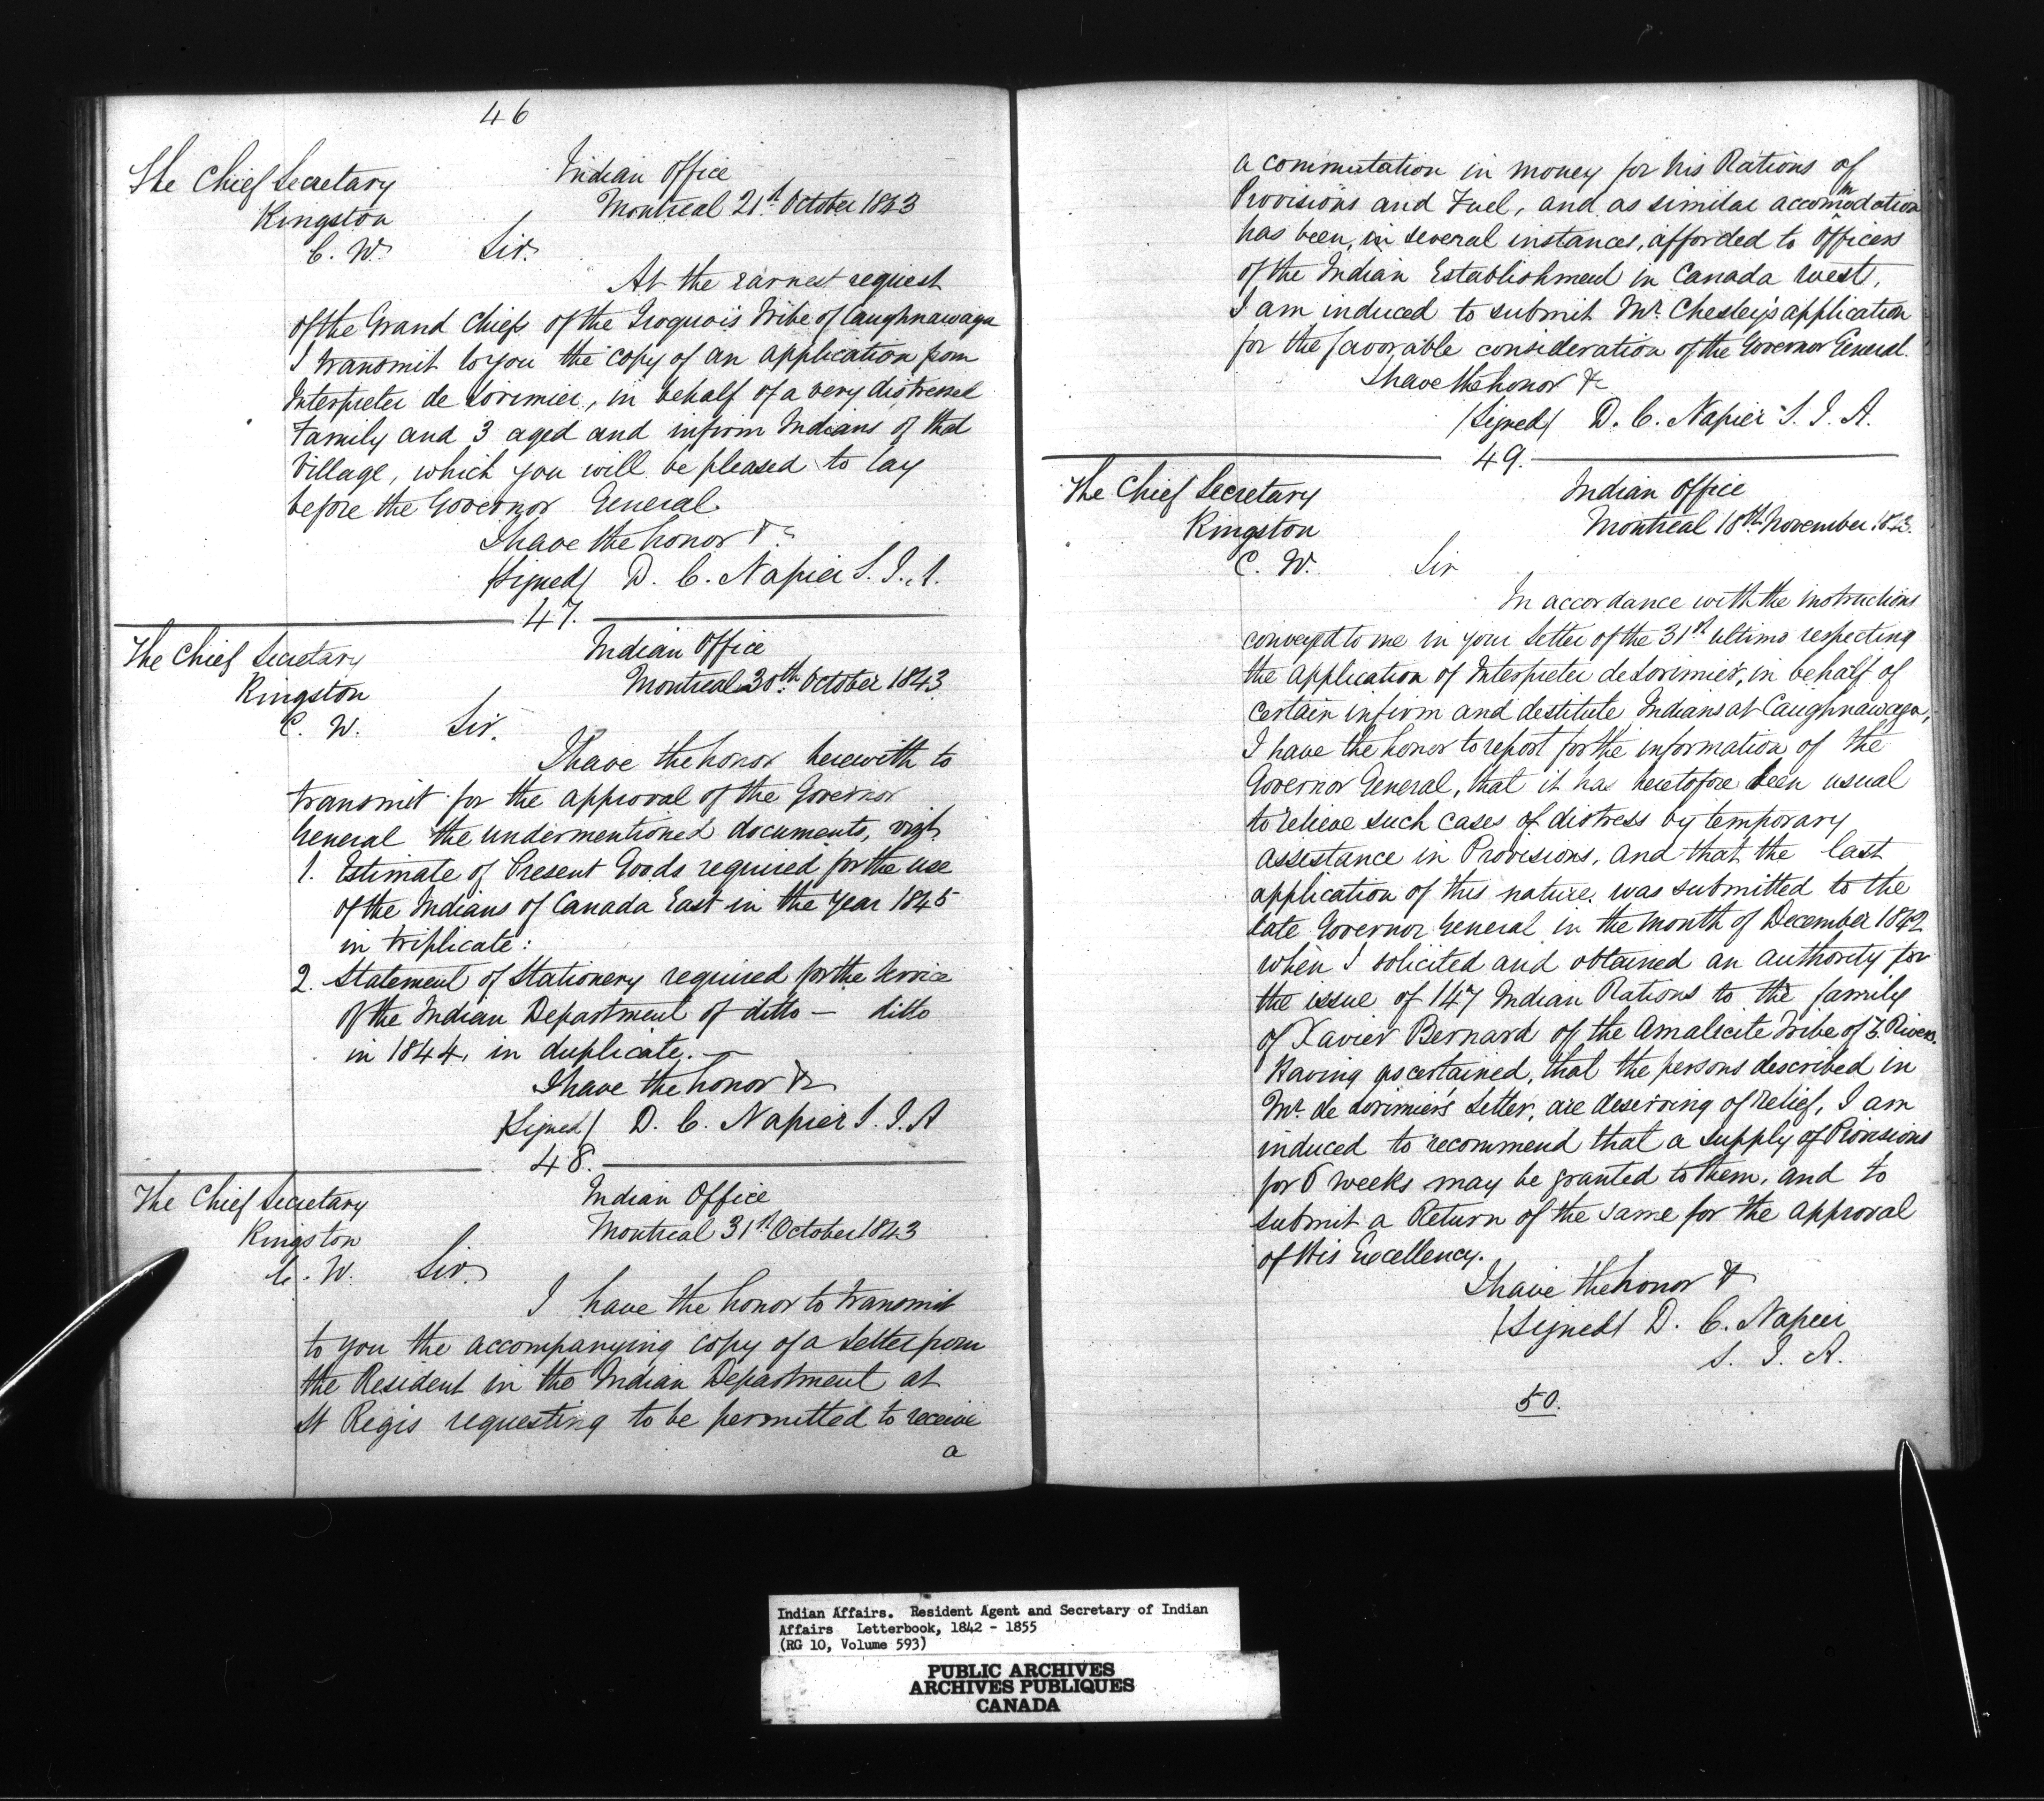 46
The Chief Secretary
Kingston
C. W.
Indian Office
Montreal 21st October 1843
Sir.
At the earnest request
of the Grand Chiefs of the Iroquois Tribe of Caughnawaga
I transmit to you the copy of an application from
Interpreter de Lorimier, in behalf of a very distressed
Family and 3 aged and infirm Indians of that
Village, which you will be pleased to lay
before the Governor General.
I have the honor &c
(Signed) D. C. Napier S. I. A.
47.
The Chief Secretary
Kingston
C. W.
Indian Office
Montreal 30th October 1843
Sir.
I have the honor herewith to
transmit for the approval of the Governor
General the undermentioned documents, vizt
1. Estimate of Present Goods required for the use
of the Indians of Canada East in the Year 1845
in triplicate:
2. Statement of Stationery required for the Service
of the Indian Department of ditto — ditto
in 1844, in duplicate. —
I have the honor &c
(Signed) D. C. Napier S. I. A
48.
The Chief Secretary
Kingston
C. W.
Indian Office
Montreal 31st October 1843
Sir.
I have the honor to transmit
to you the accompanying copy of a Letter from
the Resident in the Indian Department at
St Regis requesting to be permitted to receive
a
a commutation in money for his Rations of
Provisions and Fuel, and as similar accommodation
has been, in several instances, afforded to Officers
of the Indian Establishment in Canada West,
I am induced to submit Mr. Chesley's application
for the favorable consideration of the Governor General.
I have the honor &c
(Signed) D. C. Napier S. I. A.
49.
The Chief Secretary
Kingston
C. W.
Indian Office
Montreal 18th November 1843.
Sir
In accordance with the instructions
conveyed to me in your Letter of the 31st ultimo respecting
the application of Interpreter de Lorimier, in behalf of
certain infirm and destitute Indians at Caughnawaga,
I have the honor to report for the information of the
Governor General, that it has heretofore been usual
to relieve such cases of distress by temporary
assistance in Provisions, and that the last
application of this nature was submitted to the
late Governor General in the month of December 1842
when I solicited and obtained an authority for
the issue of 147 Indian Rations to the family
of Xavier Bernard of the Amalicite Tribe of 3. Rivers.
Having ascertained, that the persons described in
Mr. de Lorimier's Letter, are deserving of relief, I am
induced to recommend that a supply of Provisions
for 6 weeks may be granted to them, and to
submit a Return of the same for the approval
of His Excellency.
I have the honor &
(Signed) D. C. Napier
S. I. A.
50.
Indian Affairs. Resident Agent and Secretary of Indian
Affairs Letterbook, 1842 - 1855
(RG 10, Volume 593)
PUBLIC ARCHIVES
ARCHIVES PUBLIQUES
CANADA